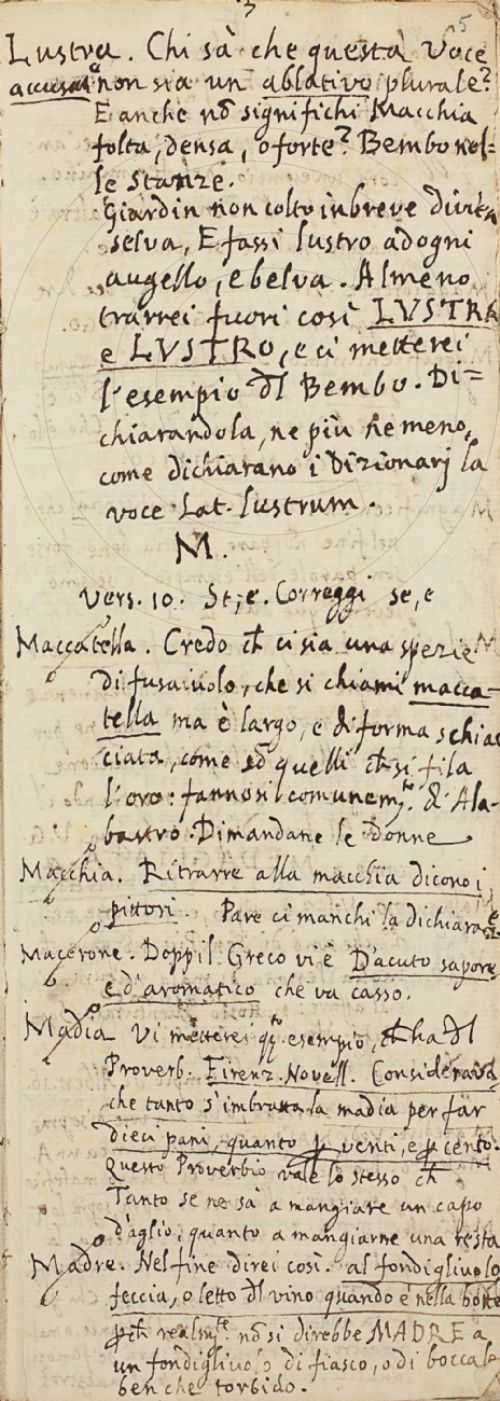 5
Lustra. Chi sà che questa Voce
accusat.ª non sia un ablativo plurale?
E anche nō significhi Macchia
folta, densa, o forte? Bembo nel=
le Stanze.
Giardin non colto in breve divien
selva, E fassi lustro ad ogni
augello, e belva. Almeno
trarrei fuori così LVSTRA
e LVSTRO, e ci metterei
l'esempio dl Bembo. Di=
chiarandola, ne più ne meno,
come dichiarano i Dizionarj la
voce Lat. lustrum.
M.
Vers. 10. St, e. Correggi se, e
Maccatella. Credo ch̄ ci sia una spezie
di fusaiuolo, che si chiami macca-
tella ma è largo, e di forma schiac
ciata, come sō quelli ch̄ si fila
l'oro: fannosi comunem.te d'Ala-
bastro. Dimandane le Donne
Macchia. Ritrarre alla macchia dicono i
pittori. Pare ci manchi la dichiaraz.e
Macerone. Dopp il Greco vi è D'acuto sapore
e d'aromatico che va casso.
Madia Vi metterei q.to esempio, ch̄ ha dl
Proverb. Firenz. Novell. Considerava
che tanto s'imbratta la madia per far
dieci pani, quanto p venti, e p cento.
Questo Proverbio vale lo stesso ch̄
Tanto se ne sà a mangiare un capo
d'aglio, quanto a mangiarne una resta
Madre. Nel fine direi così. al fondigliuolo
feccia, o letto dl vino quando è nella botte
pch̄ realm.te nō si direbbe MADRE a
un fondigliuolo di fiasco, o di boccale
ben che torbido.